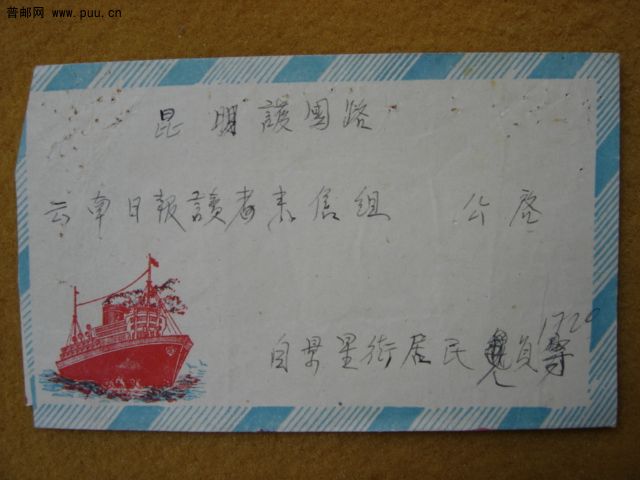 普邮网 www.puu.cn
昆明護國路
云南日報讀者来信组 公啓
1720
自景星街居民